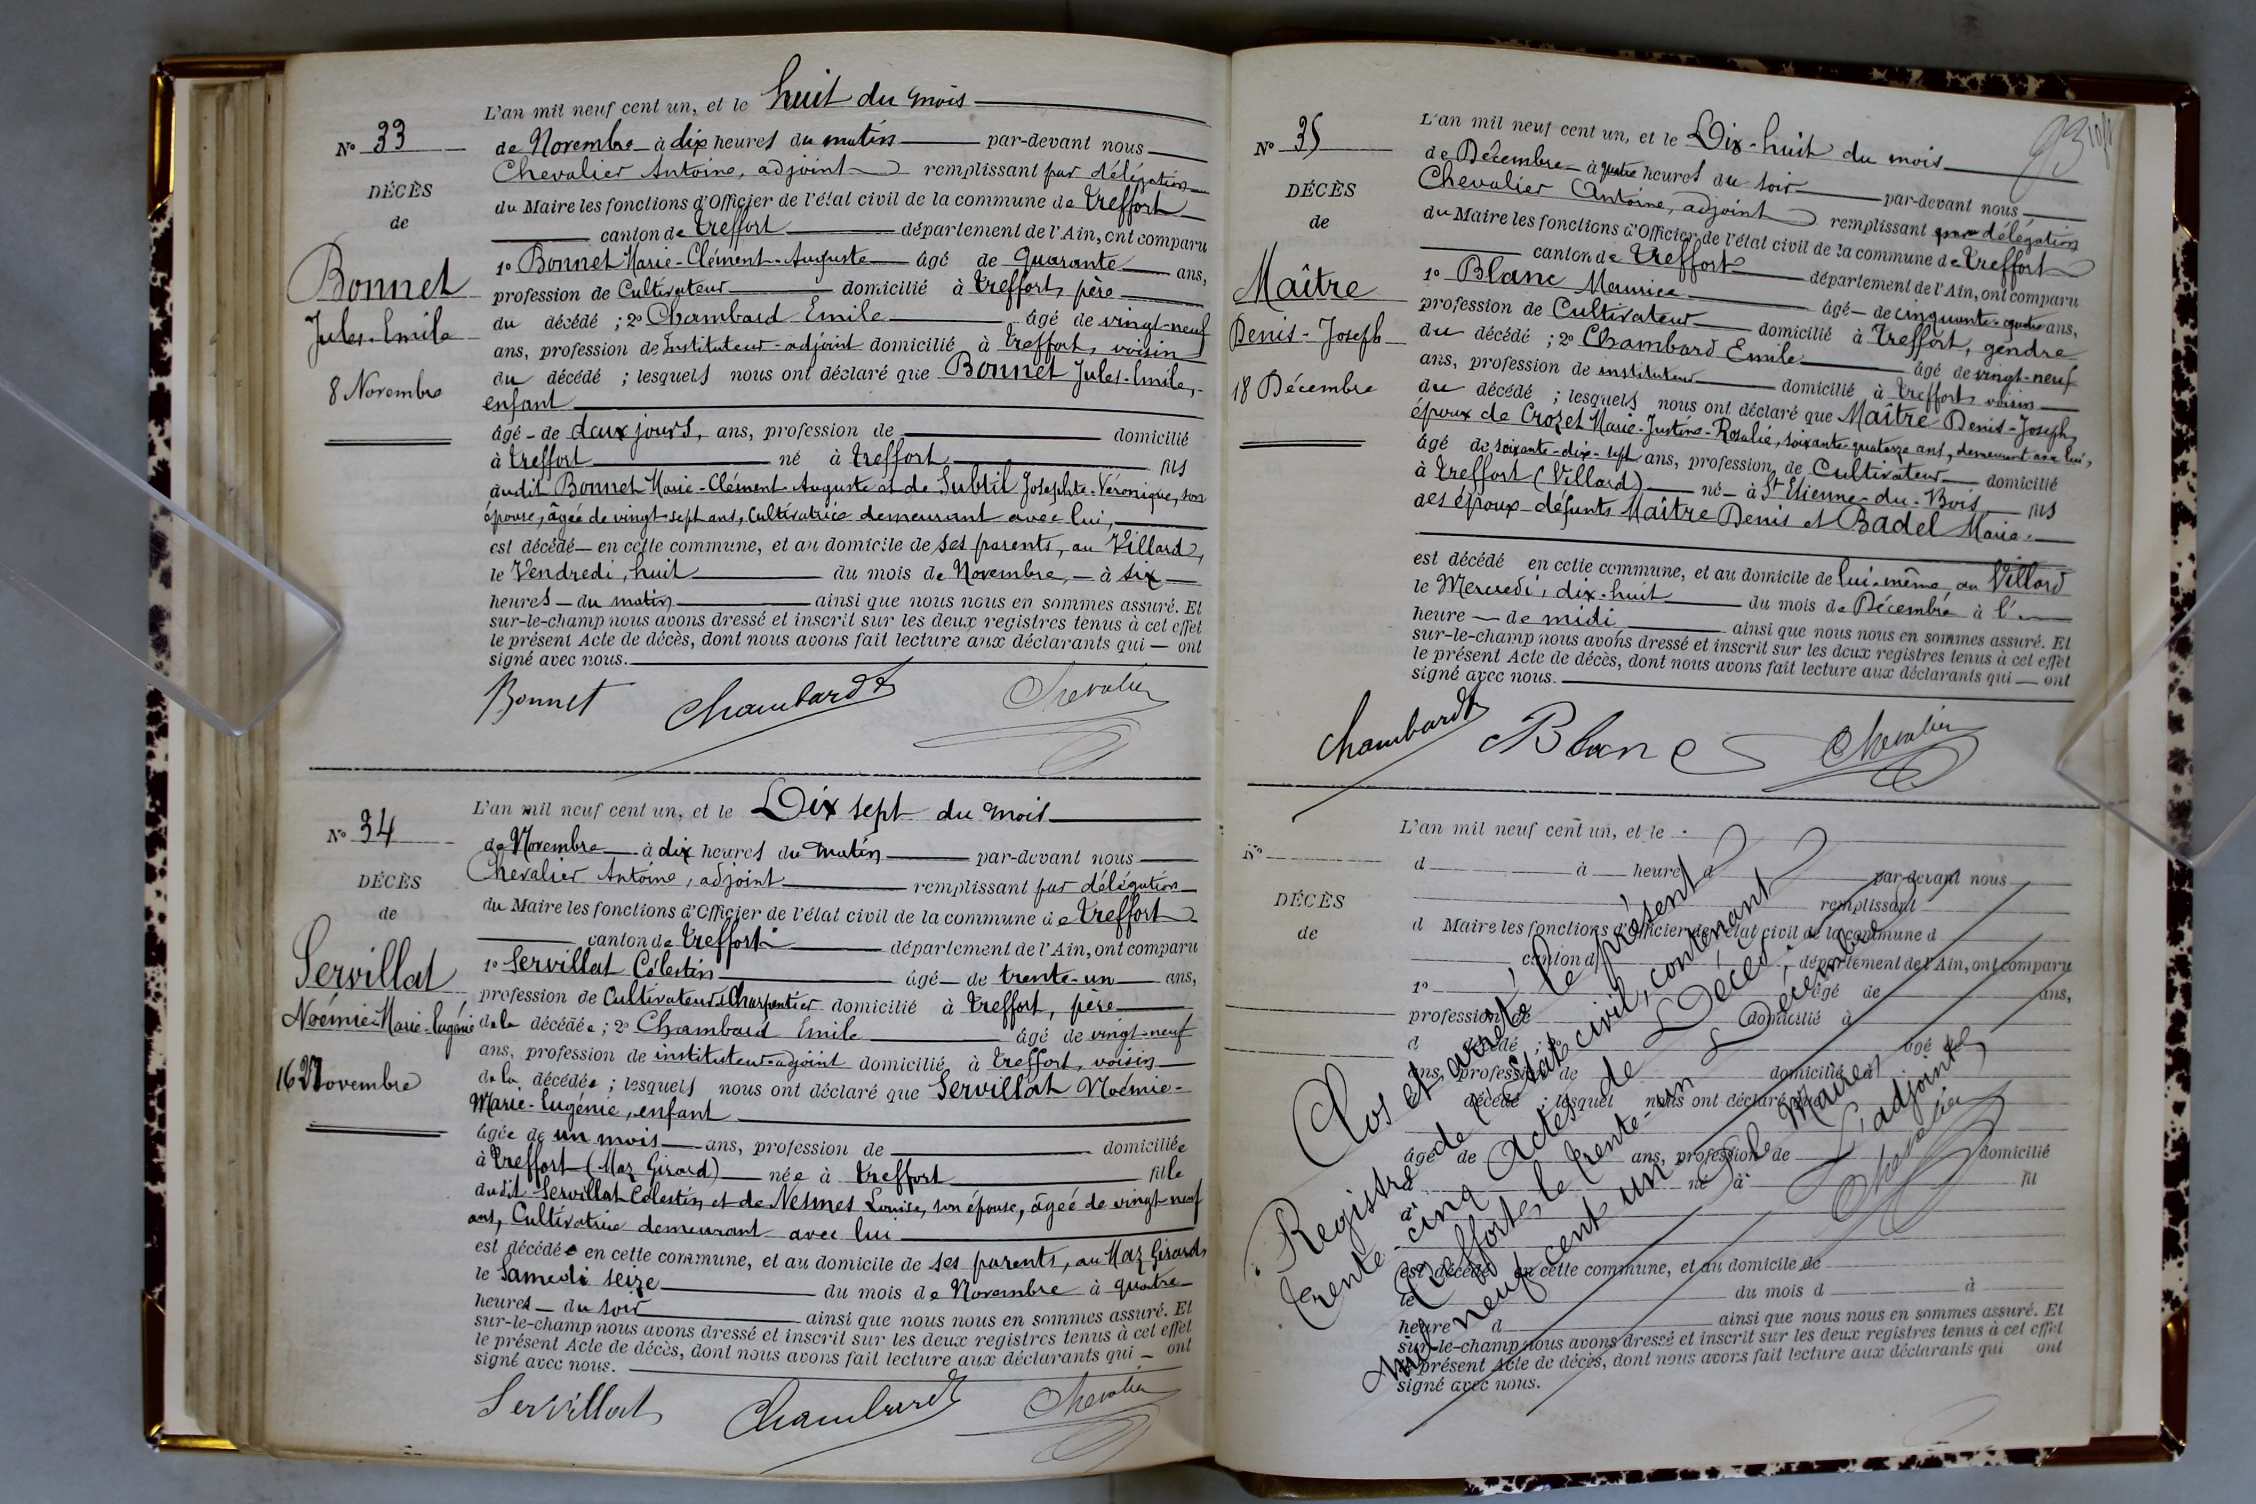 L'an mil neuf cent un, et le huit du mois
No 33
de Novembre à dix heures du matin par-devant nous
Chevalier Antoine, adjoint remplissant par délégation
DÉCÈS
du Maire les fonctions d'Officier de l'état civil de la commune de Treffort
de
canton de Treffort département de l'Ain, ont comparu
Bonnet
1o Bonnet Marie-Clément-Auguste âgé de quarante ans,
profession de Cultivateur domicilié à Treffort, père
Jules-Emile
du décédé ; 2o Chambard Emile âgé de vingt-neuf
ans, profession de Instituteur-adjoint domicilié à Treffort, voisin
8 Novembre
du décédé ; lesquels nous ont déclaré que Bonnet Jules-Emile,
enfant
âgé de deux jours, ans, profession de domicilié
à Treffort né à Treffort fils
dudit Bonnet Marie-Clément-Auguste et de Subtil Josephte-Véronique, son
épouse, âgée de vingt-sept ans, Cultivatrice demeurant avec lui,
est décédé en cette commune, et au domicile de ses parents, au Villard,
le Vendredi, huit du mois de Novembre, à six
heures du matin ainsi que nous nous en sommes assuré. Et
sur-le-champ nous avons dressé et inscrit sur les deux registres tenus à cet effet
le présent Acte de décès, dont nous avons fait lecture aux déclarants qui ont
signé avec nous.
Bonnet Chambard Chevalier
L'an mil neuf cent un, et le Dix sept du mois
No 34
de Novembre à dix heures du matin par-devant nous
Chevalier Antoine, adjoint remplissant par délégation
DÉCÈS
du Maire les fonctions d'Officier de l'état civil de la commune de Treffort
de
canton de Treffort département de l'Ain, ont comparu
Servillat
1o Servillat Célestin âgé de trente-un ans,
profession de Cultivateur et Charpentier domicilié à Treffort, père
Noémie-Marie-Eugénie
de la décédée ; 2o Chambard Emile âgé de vingt-neuf
ans, profession de instituteur-adjoint domicilié à Treffort, voisin
16 Novembre
de la décédée ; lesquels nous ont déclaré que Servillat Noémie-
Marie-Eugénie, enfant
âgée de un mois ans, profession de domiciliée
à Treffort (Maz Girard) née à Treffort fille
dudit Servillat Célestin, et de Nesmes Louise, son épouse, âgée de vingt-neuf
ans, Cultivatrice demeurant avec lui
est décédée en cette commune, et au domicile de ses parents, au Maz Girard,
le Samedi seize du mois de Novembre à quatre
heures du soir ainsi que nous nous en sommes assuré. Et
sur-le-champ nous avons dressé et inscrit sur les deux registres tenus à cet effet
le présent Acte de décès, dont nous avons fait lecture aux déclarants qui ont
signé avec nous.
Servillat Chambard Chevalier
93
L'an mil neuf cent un, et le Dix-huit du mois
No 35
de Décembre à quatre heures du soir par-devant nous
Chevalier Antoine, adjoint remplissant par délégation
DÉCÈS
du Maire les fonctions d'Officier de l'état civil de la commune de Treffort
de
canton de Treffort département de l'Ain, ont comparu
Maître
1o Blanc Maurice âgé de cinquante-quatre ans,
profession de Cultivateur domicilié à Treffort, gendre
Denis-Joseph
du décédé ; 2o Chambard Emile âgé de vingt-neuf
ans, profession de instituteur domicilié à Treffort, voisin
18 Décembre
du décédé ; lesquels nous ont déclaré que Maître Denis-Joseph,
époux de Crozet Marie-Justine-Rosalie, soixante-quatorze ans, demeurant avec lui,
âgé de soixante-dix-sept ans, profession de Cultivateur domicilié
à Treffort (Villard) né à St Etienne-du-Bois, fils
des époux défunts Maître Denis et Badel Marie.
est décédé en cette commune, et au domicile de lui-même, au Villard
le Mercredi, dix-huit du mois de Décembre à l'
heure de midi ainsi que nous nous en sommes assuré. Et
sur-le-champ nous avons dressé et inscrit sur les deux registres tenus à cet effet
le présent Acte de décès, dont nous avons fait lecture aux déclarants qui ont
signé avec nous.
Chambard Blanc Chevalier
L'an mil neuf cent un, et le
No
d à heure d par-devant nous
remplissant
DÉCÈS
d Maire les fonctions d'Officier de l'état civil de la commune d
de
canton d département de l'Ain, ont comparu
1o âgé de ans,
profession de domicilié à
d décédé ; 2o âgé de
ans, profession de domicilié à
d décédé ; lesquel nous ont déclaré que
âgé de ans, profession de domicilié
à né à fil
est décédé en cette commune, et au domicile de
le du mois d à
heure d ainsi que nous nous en sommes assuré. Et
sur-le-champ nous avons dressé et inscrit sur les deux registres tenus à cet effet
le présent Acte de décès, dont nous avons fait lecture aux déclarants qui ont
signé avec nous.
Clos et arrêté le présent
Registre de l'Etat civil, contenant
trente-cinq Actes de Décès ;
Treffort, le trente-un Décembre
mil neuf cent un.
P. le Maire,
L'adjoint,
Chevalier